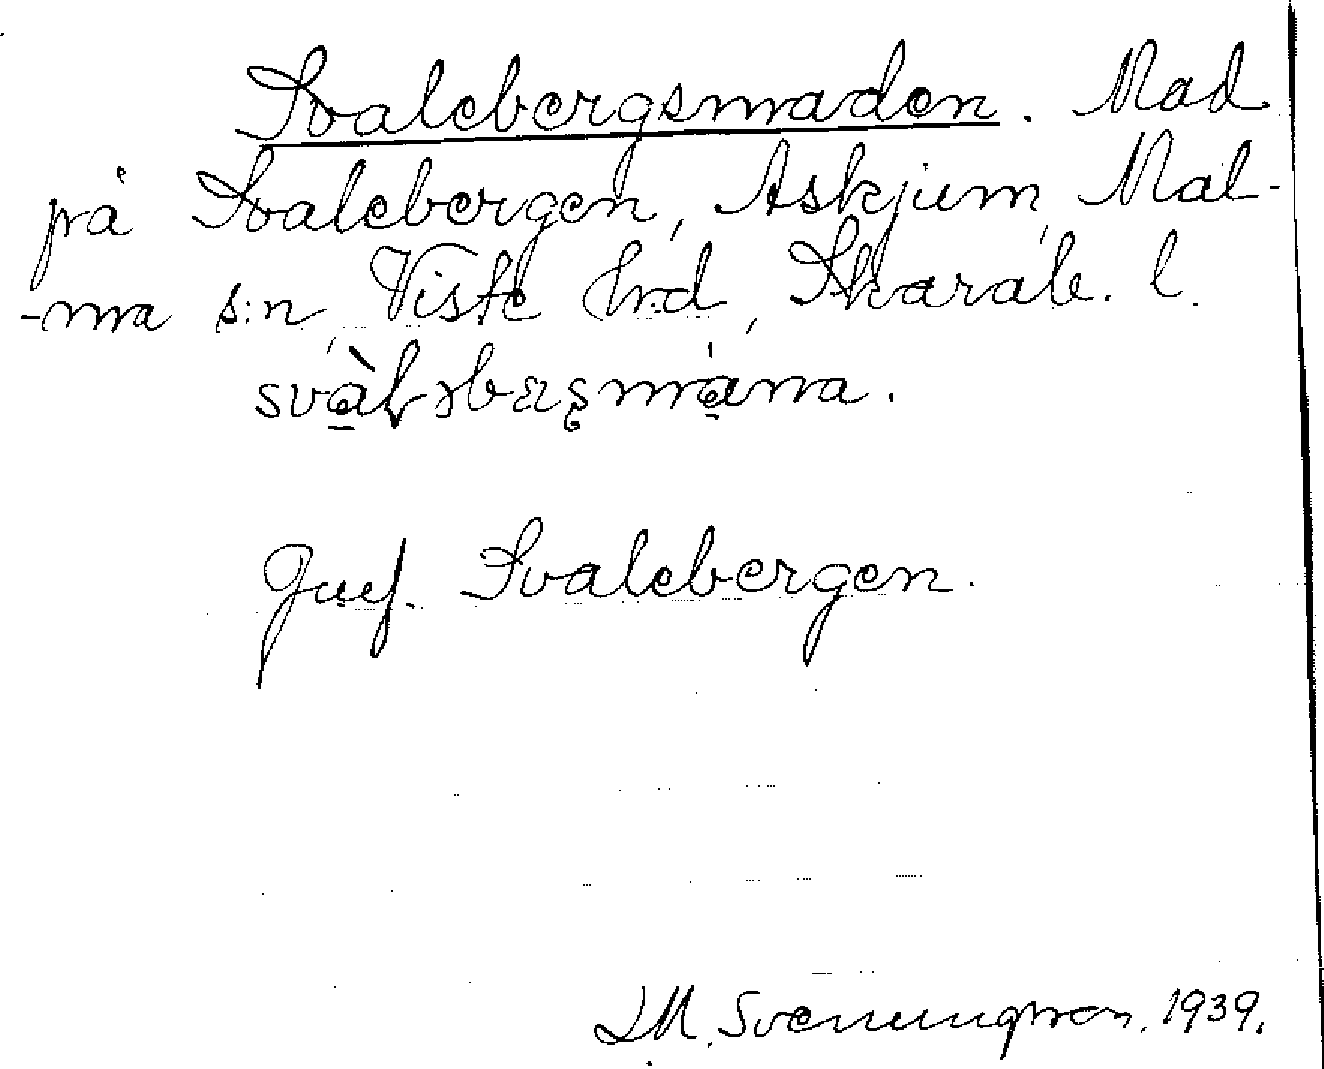 Svalebergsmaden. Mad
på Svalebergen, Askjum, Mal-
-ma s:n, Viste hrd, Skarab. l.
Svalebergen.
J.M. Svenungsson. 1939.